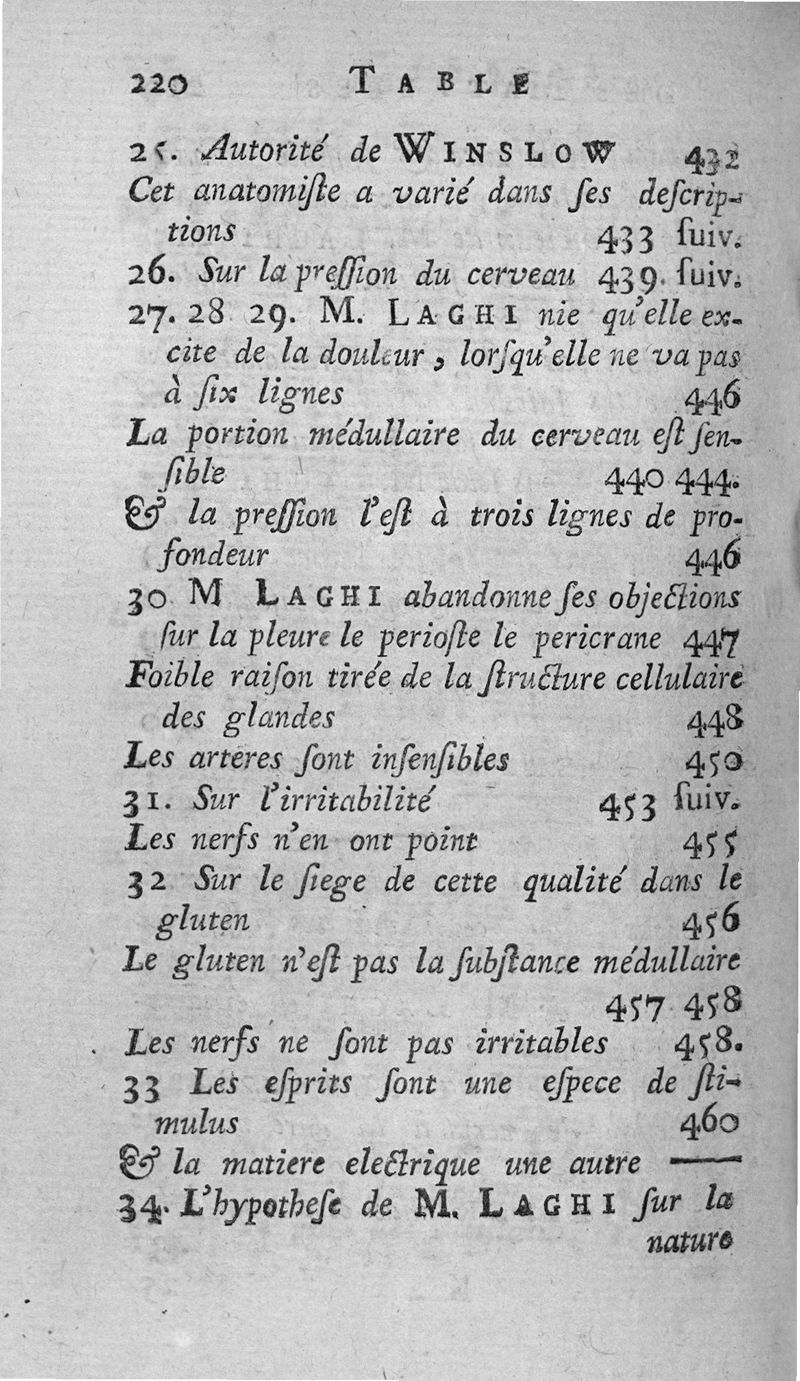 220 TABLE
25. Autorité de WINSLOW 432
Cet anatomiſte a varié dans ſes deſcrip-
tions 433 ſuiv.
26. Sur la preſſion du cerveau 439. ſuiv.
27. 28 29. M. LAGHI nie qu'elle ex-
cite de la douleur, lorſqu'elle ne va pas
à ſix lignes 446
La portion médullaire du cerveau eſt ſen-
ſible 440 444.
& la preſſion l'eſt à trois lignes de pro-
fondeur 446
30 M LAGHI abandonne ſes objections
ſur la pleure le perioſte le pericrane 447
Foible raiſon tirée de la ſtructure cellulaire
des glandes 448
Les arteres ſont inſenſibles 450
31. Sur l'irritabilité 453 ſuiv.
Les nerfs n'en ont point 455
32 Sur le ſiege de cette qualité dans le
gluten 456
Le gluten n'eſt pas la ſubſtance médullaire
457 458
Les nerfs ne ſont pas irritables 458.
33 Les eſprits ſont une eſpece de ſti-
mulus 460
& la matiere electrique une autre ——
34. L'hypotheſe de M. LAGHI ſur la
nature